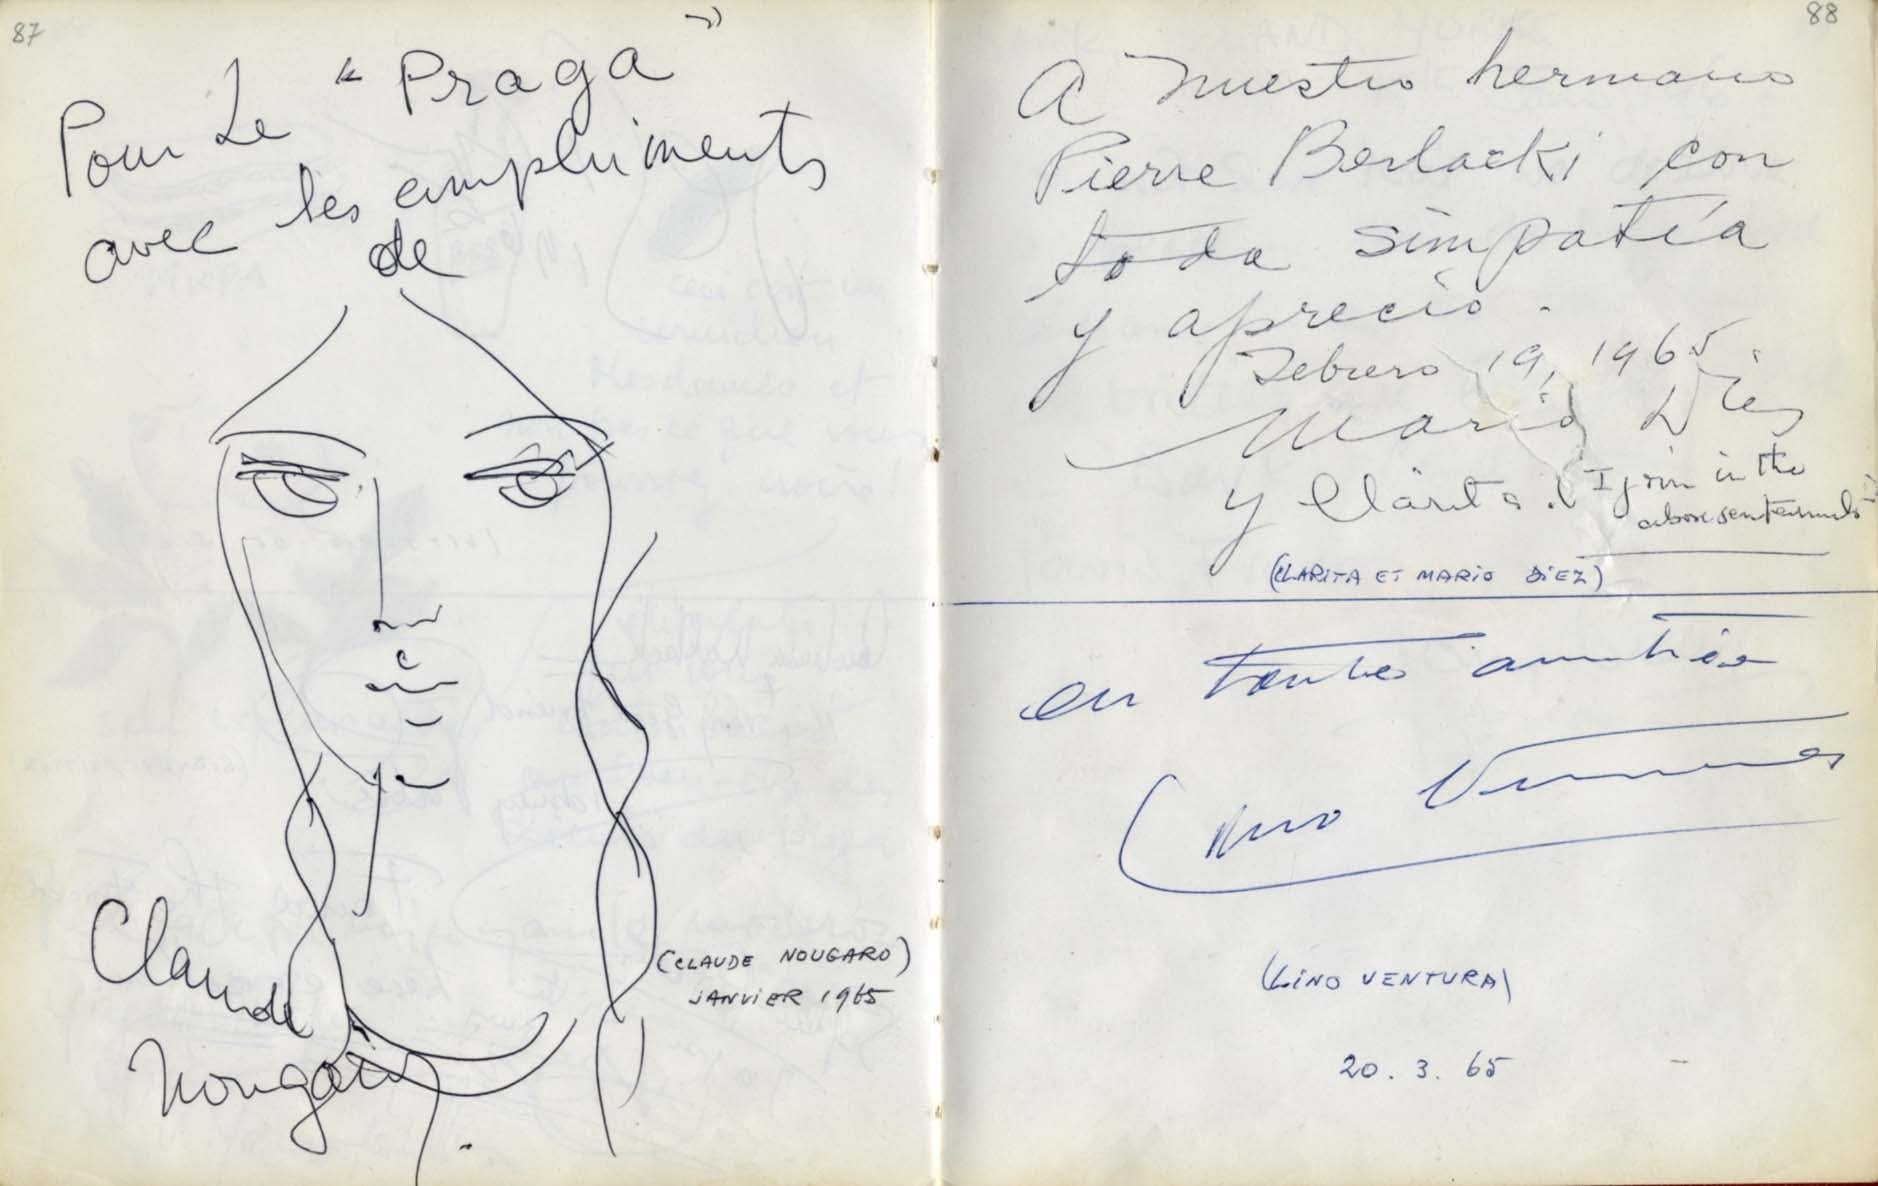 87
Pour Le "Praga"
avec les compliments
de
Claude
Nougaro
(CLAUDE NOUGARO)
JANVIER 1965
88
A nuestro hermano
Pierre Berlacki con
toda simpatía
y aprecio.
Febrero 19, 1965.
Mario Díez
y Clarita. I join in the
above sentiments
(CLARITA ET MARIO DÍEZ)
en toutes amitiés
Lino Ventura
(LINO VENTURA)
20.3.65